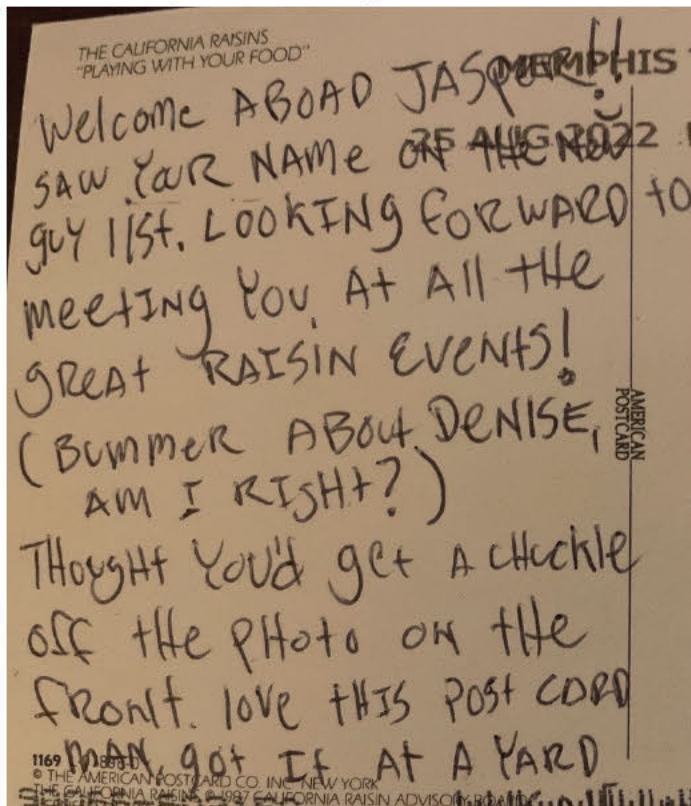 THE CALIFORNIA RAISINS
"PLAYING WITH YOUR FOOD"
MEMPHIS
25 AUG 2022
Welcome ABOAD JASPER!!
SAW YOUR NAME ON THE NEW
guy list. LOOKING FORWARD to
meetING You At All the
gREAt RAISIN EVENtS!
(BUMMER ABOUt DENISE,
AM I RIGHt?)
THOUGHt You'd get A CHUCKLE
off tHE PHOto ON tHE
fRONt. love tHIS Post CORD
MAN, got It At A YARD
AMERICAN
POSTCARD
1169
© THE AMERICAN POSTCARD CO. INC. NEW YORK
THE CALIFORNIA RAISINS © 1987 CALIFORNIA RAISIN ADVISORY BOARD